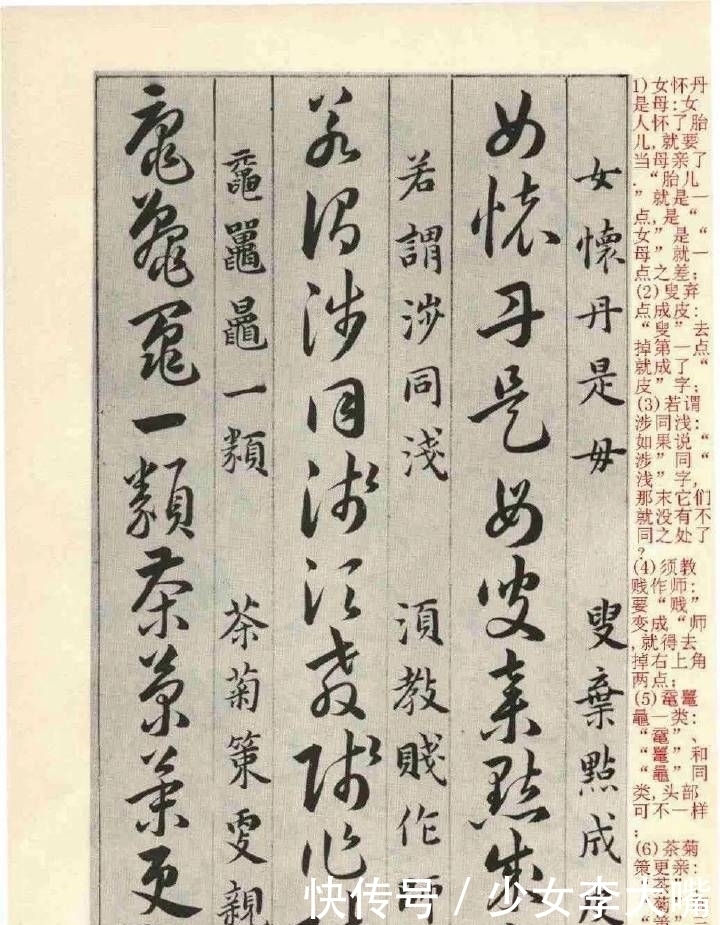 1)女怀丹
是母:女
人怀了胎
儿,就要
当母亲了
.“胎儿
”就是一
点,是“
女”是“
母”就一
点之差;
(2)叟弃
点成皮:
“叟”去
掉第一点
就成了“
皮”字;
(3)若谓
涉同浅:
如果说“
涉”同“
浅”字,
那末它们
就没有不
同之处了
?
(4)须教
贱作师:
要“贱”
变成“师
,就得去
掉右上角
两点;
(5)黿鼉
一类:
“黿”、
“鼉”和
同
类,头部
可不一样
;
(6)茶菊
策更亲:
女懷丹是母 叟棄點成
女懷丹是母叟棄點成
若謂涉同淺 須教賤作師
若謂涉同淺須教賤作
黿鼉一類 茶菊策更親
黿鼉一類茶菊策更
快传号/少女李大嘴